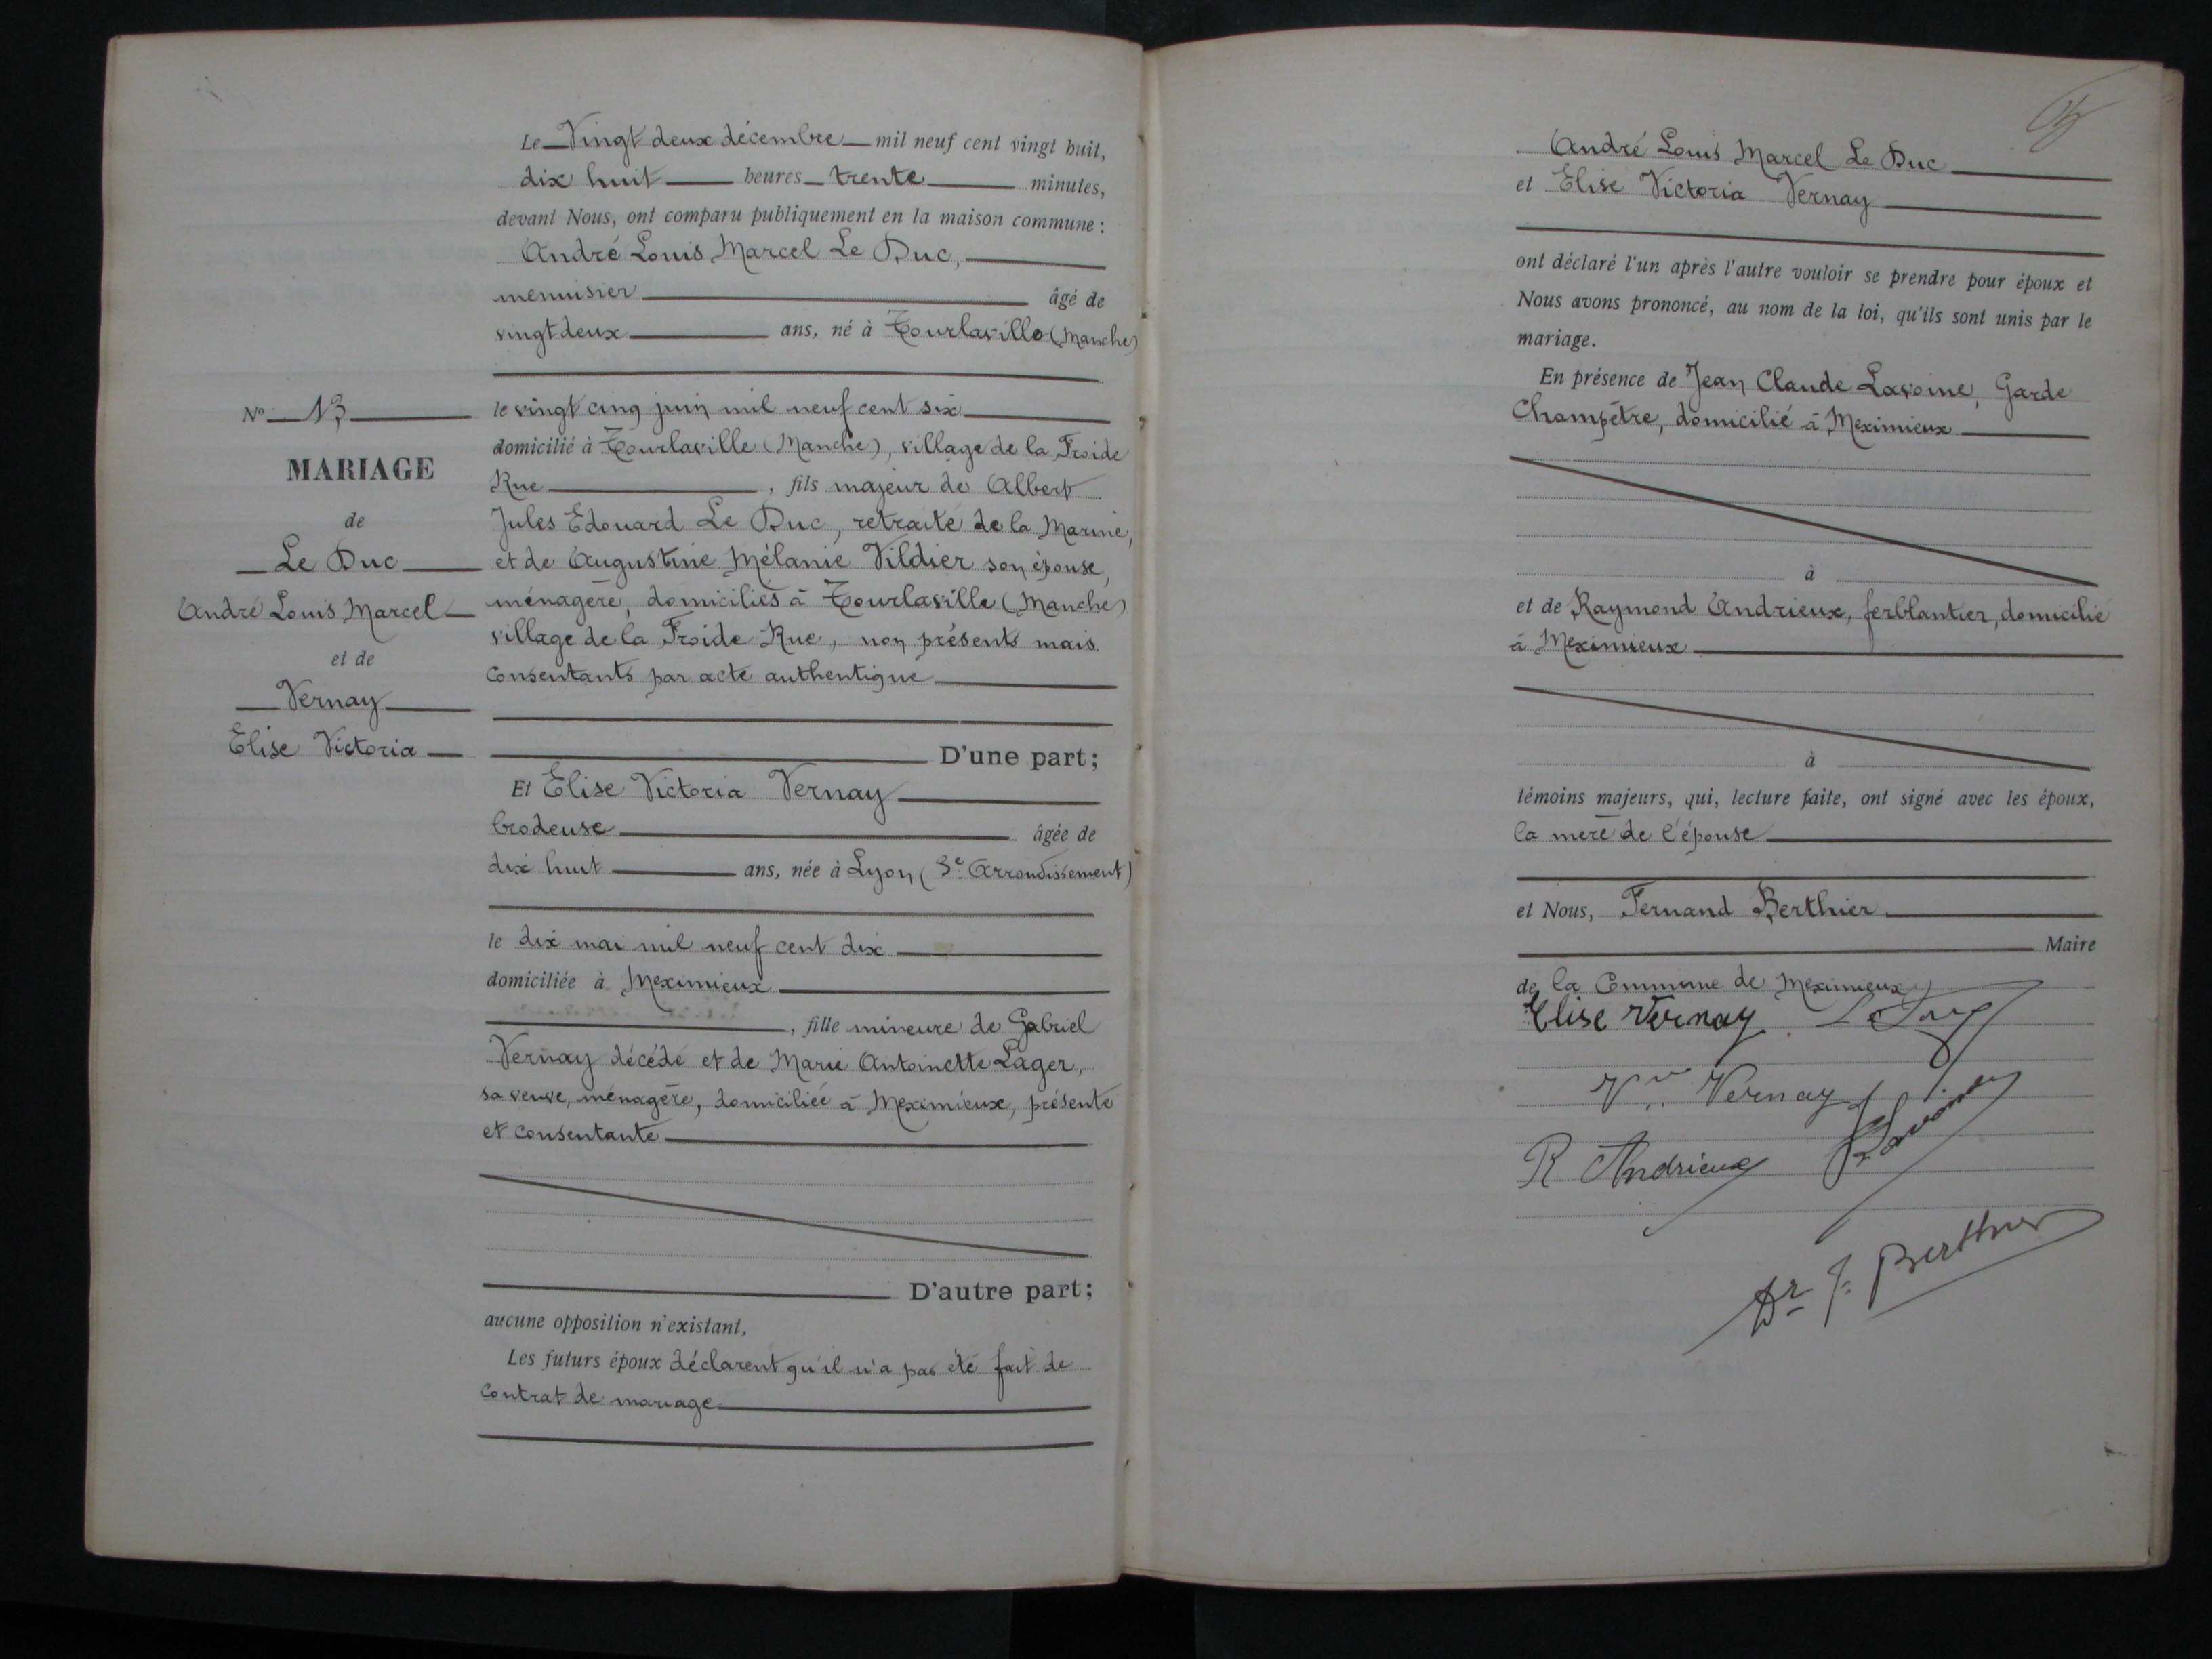 Le Vingt deux décembre mil neuf cent vingt huit,
dix huit heures trente minutes,
devant Nous, ont comparu publiquement en la maison commune :
André Louis Marcel Le Duc,
menuisier âgé de
vingt deux ans, né à Tourlaville (Manche)
N° 13
MARIAGE
de
Le Duc
André Louis Marcel
et de
Vernay
Elise Victoria
le vingt cinq juin mil neuf cent six
domicilié à Tourlaville (Manche), village de la Froide
Rue , fils majeur de Albert
Jules Edouard Le Duc, retraité de la Marine,
et de Augustine Mélanie Vildier son épouse,
ménagère, domiciliés à Tourlaville (Manche)
village de la Froide Rue, non présents mais
consentants par acte authentique
D'une part ;
Et Elise Victoria Vernay
brodeuse âgée de
dix huit ans, née à Lyon (3e Arrondissement)
le dix mai mil neuf cent dix
domiciliée à Meximieux
, fille mineure de Gabriel
Vernay décédé et de Marie Antoinette Lager,
sa veuve, ménagère, domiciliée à Meximieux, présente
et consentante
D'autre part ;
aucune opposition n'existant,
Les futurs époux déclarent qu'il n'a pas été fait de
contrat de mariage
André Louis Marcel Le Duc
et Elise Victoria Vernay
ont déclaré l'un après l'autre vouloir se prendre pour époux et
Nous avons prononcé, au nom de la loi, qu'ils sont unis par le
mariage.
En présence de Jean Claude Lavoine, Garde
Champêtre, domicilié à Meximieux
à
et de Raymond Andrieux, ferblantier, domicilié
à Meximieux
à
témoins majeurs, qui, lecture faite, ont signé avec les époux,
la mère de l'épouse
et Nous, Fernand Berthier
Maire
de la Commune de Meximieux
Elise Vernay Le Duc
Vve Vernay
R Andrieux Lavoine
Dr F. Berthier